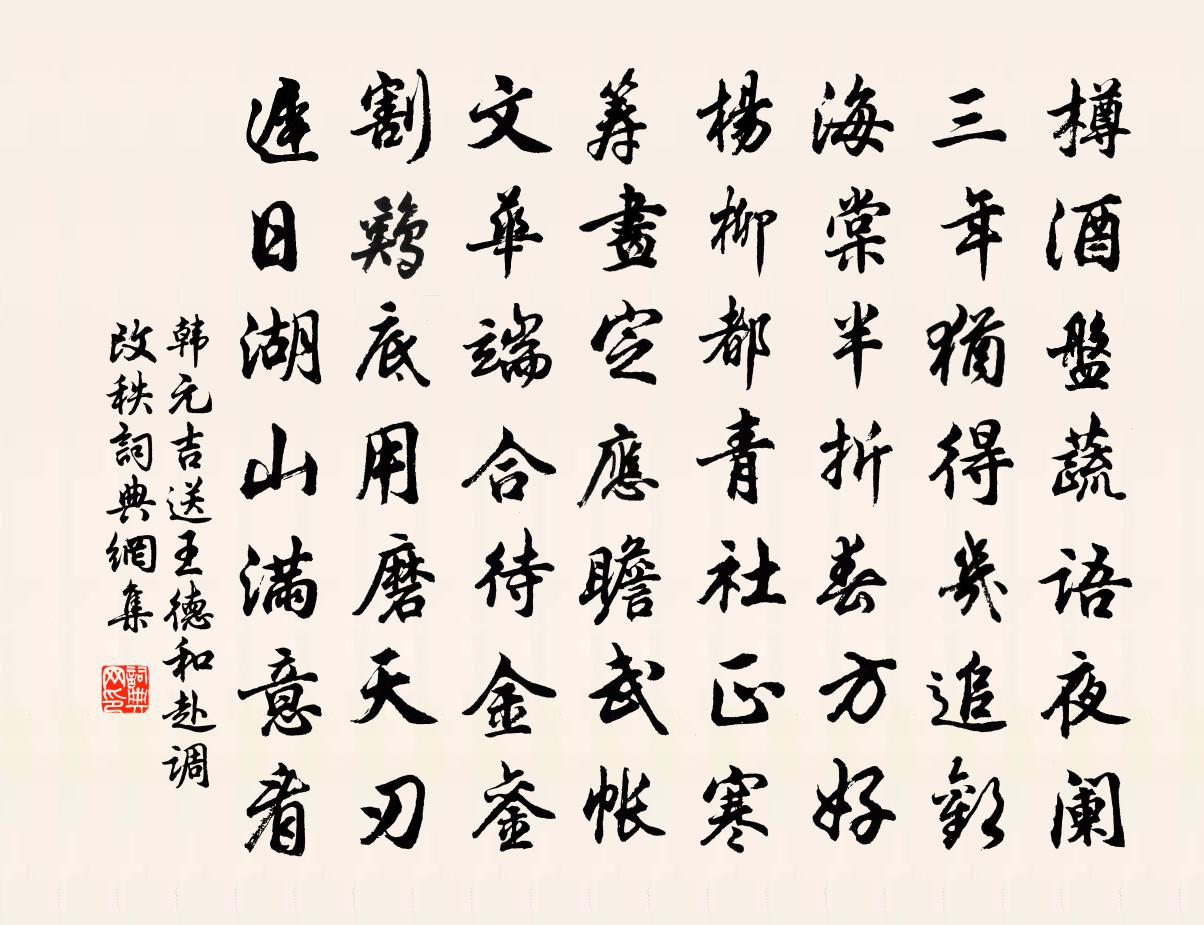 樽酒盤蔬语夜阑
三年猶得幾追歡
海棠半折春方好
楊柳都青社正寒
筹畫定應瞻武帐
文華端合待金銮
割鷄底用磨天刃
遲日湖山满意看
韩元吉送王德和赴调
改秩詞典網集
詞典网印